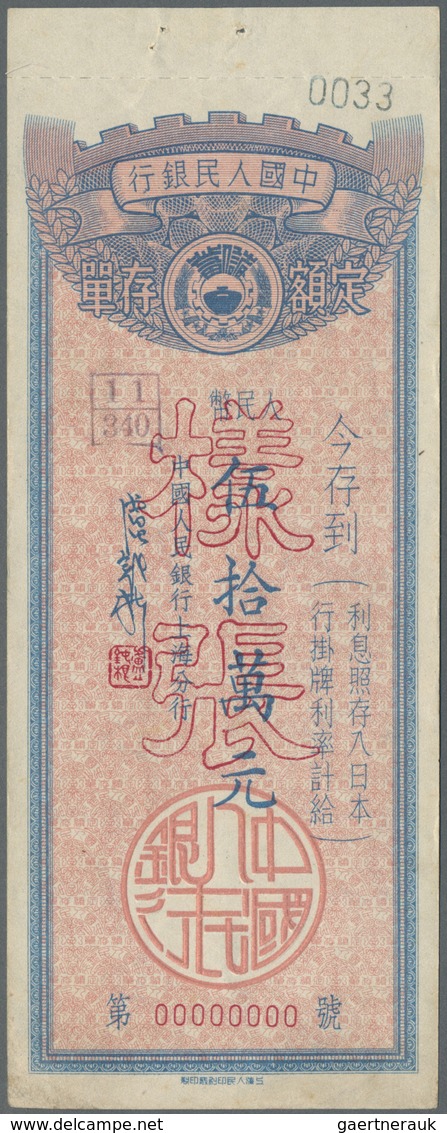 0033
中國人民銀行
定額存單
今存到
(利息照存入日本
行掛牌利率計給)
人民幣
伍拾萬元
樣張
中國人民銀行上海分行
11
340
中國人民銀行
第 00000000 號
©gaertnerauk
delcampe.net